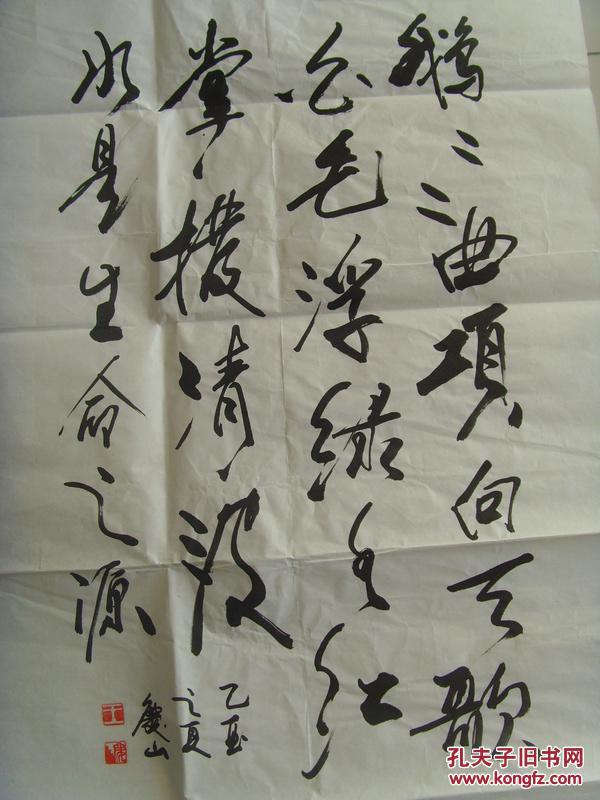 鹅〻〻曲項向天歌
白毛浮绿水红
掌撥清波
水是生命之源
乙酉
之夏
慶山
孔夫子旧书网
www.kongfz.com